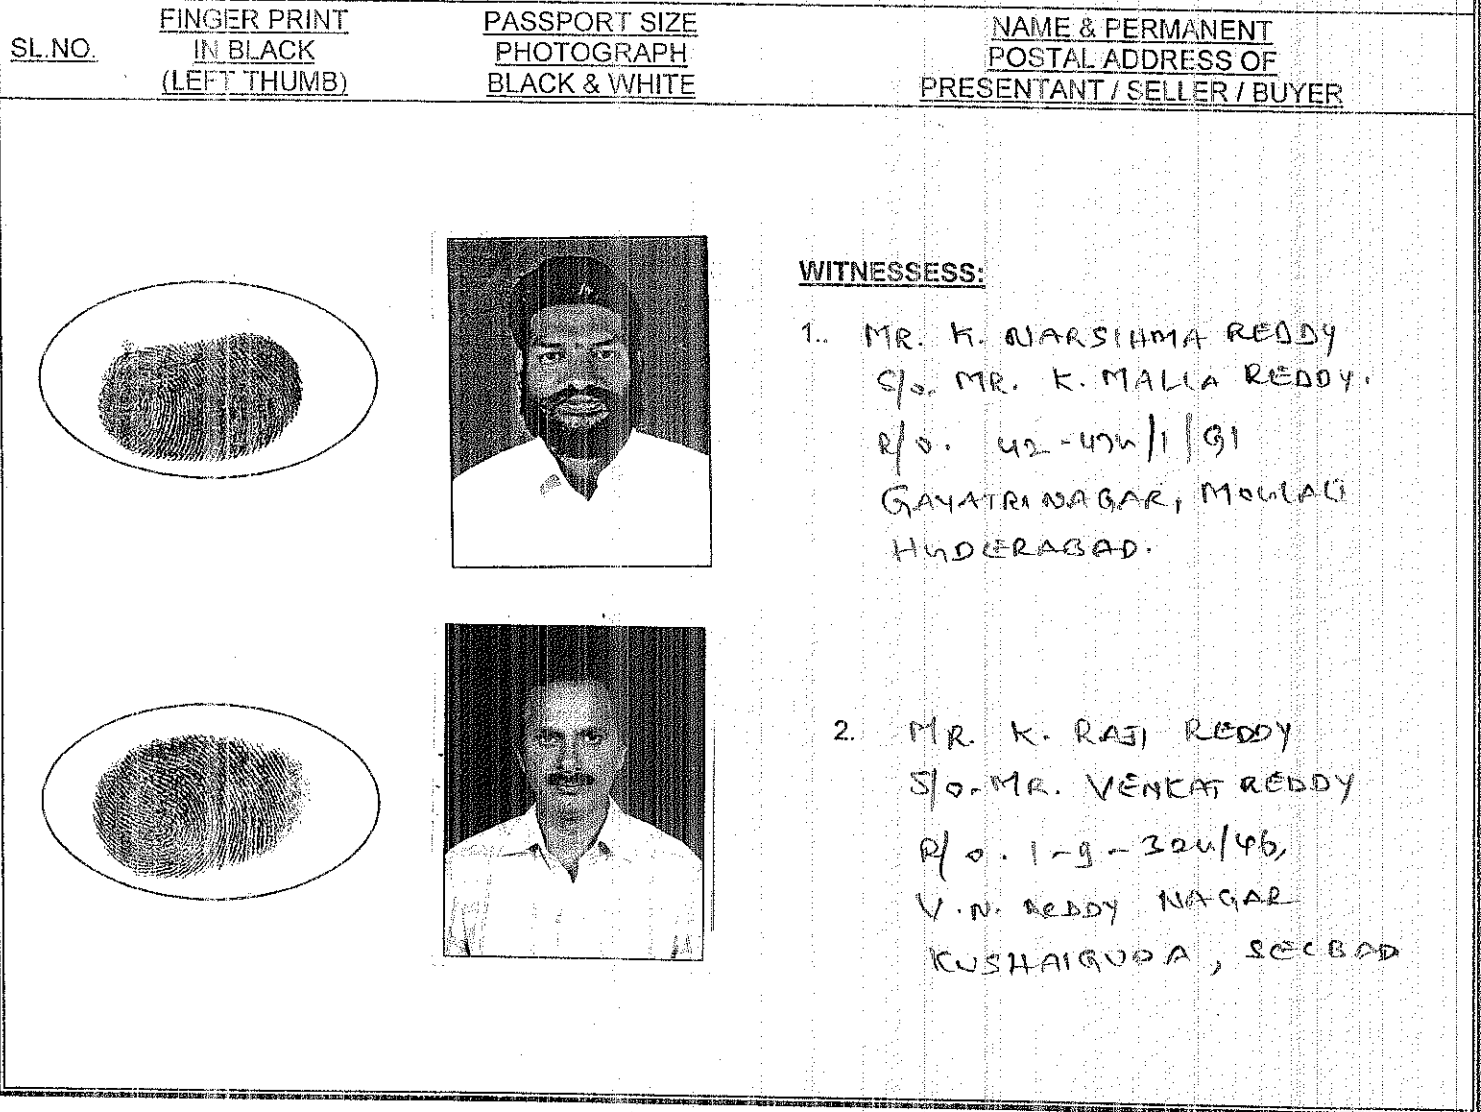 SL.NO.
FINGER PRINT
IN BLACK
(LEFT THUMB)
PASSPORT SIZE
PHOTOGRAPH
BLACK & WHITE
NAME & PERMANENT
POSTAL ADDRESS OF
PRESENTANT / SELLER / BUYER
WITNESSESS:
1. MR. K. NARSIHMA REDDY
S/o. MR. K. MALLA REDDY.
R/o.
GAYATRI NAGAR, MOULALI
HYDERABAD.
2. MR. K. RAJI REDDY
S/o. MR. VENKAT REDDY
R/o. 1-9-324/46,
V.N. REDDY NAGAR
KUSHAIGUDA, SECBAD